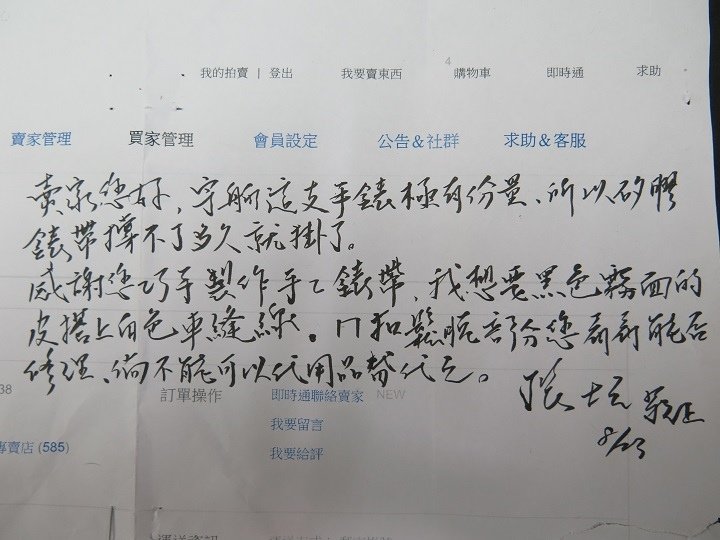 4
我的拍賣 | 登出 我要賣東西 購物車 即時通 求助
賣家管理 買家管理 會員設定 公告&社群 求助&客服
卖家您好,宇舶這支手錶極有份量、所以矽膠
錶帶撐不了多久就掛了。
感謝您巧手製作手工錶帶,我想要黑色霧面的
皮搭上白色車縫線。ㄇ扣鬆脫部份您看看能否
修理、倘不能可以代用品替代之。
38 訂單操作 即時通聯絡賣家 NEW
我要留言
8/23
專賣店 (585) 我要給評